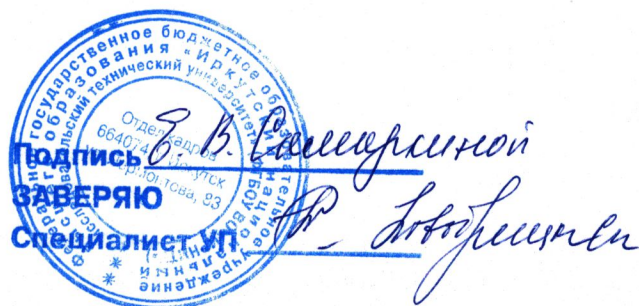 Федеральное государственное бюджетное образовательное учреждение
высшего образования «Иркутский национальный
исследовательский технический университет»
Отдел кадров
664074, г. Иркутск
ул. Лермонтова, 83
Подпись Е. В. Самаркиной
ЗАВЕРЯЮ
Специалист УП